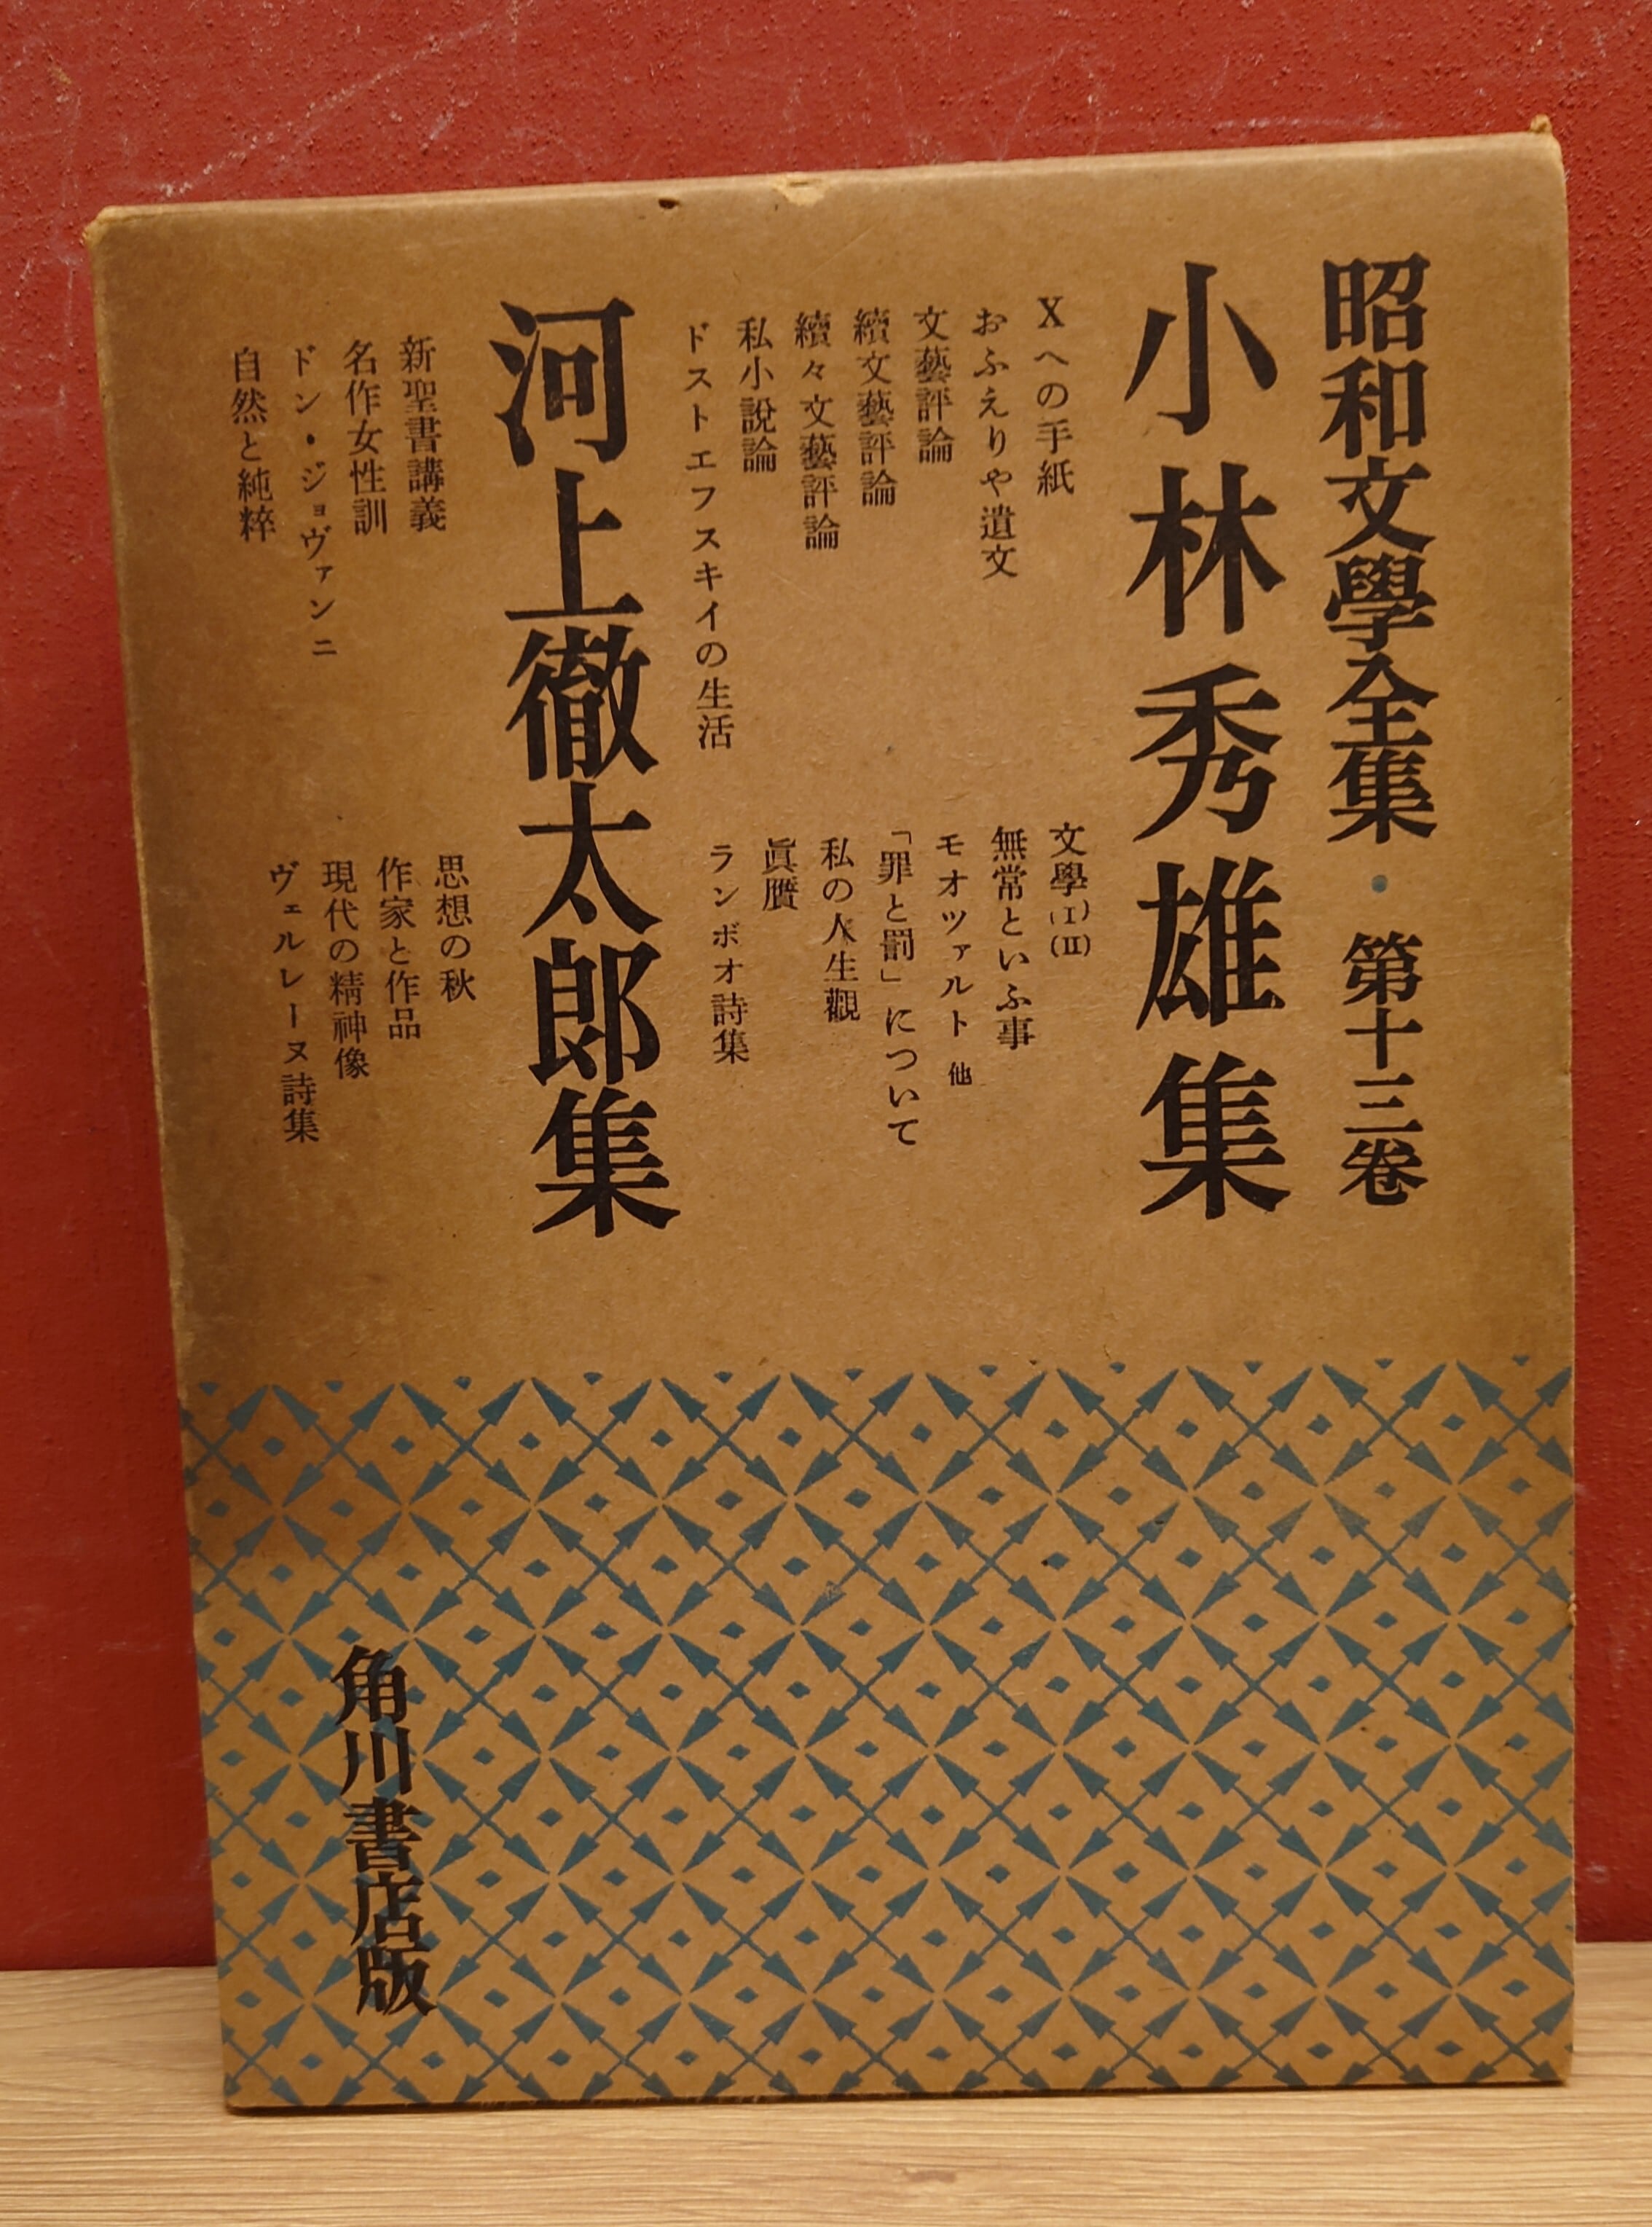 昭和文學全集・第十三卷
小林秀雄集
Xへの手紙
おふえりや遺文
文藝評論
續文藝評論
續々文藝評論
私小說論
ドストエフスキイの生活
文學(I)(II)
無常といふ事
モオツァルト 他
「罪と罰」について
私の人生觀
眞贋
ランボオ詩集
河上徹太郎集
新聖書講義
名作女性訓
ドン・ジョヴァンニ
自然と純粹
思想の秋
作家と作品
現代の精神像
ヴェルレーヌ詩集
角川書店版